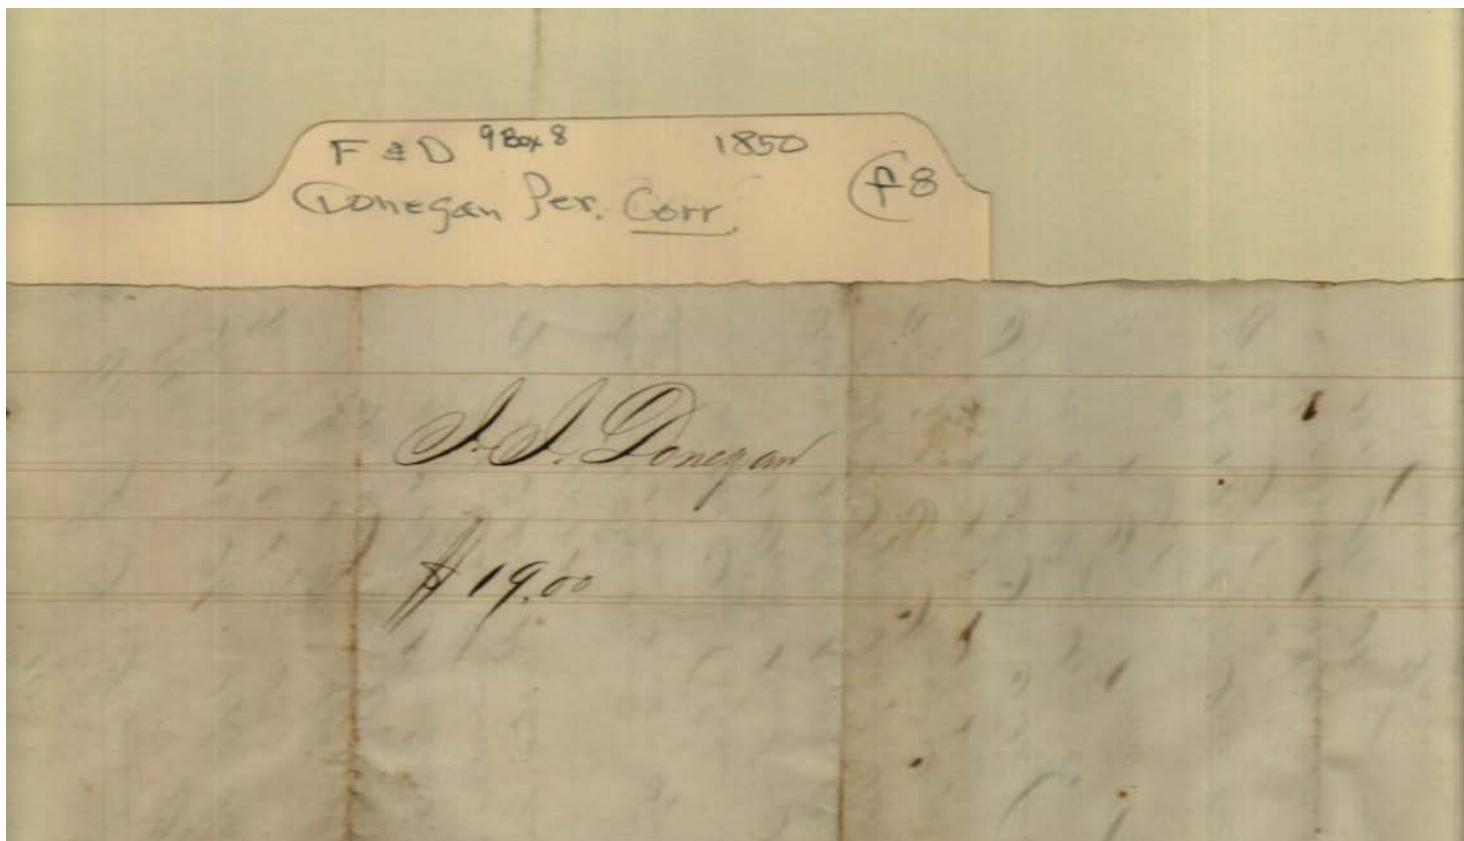 F & D 9 Box 8 1850
Donegan Per. Corr. f8
J. J. Donegan
$19.00